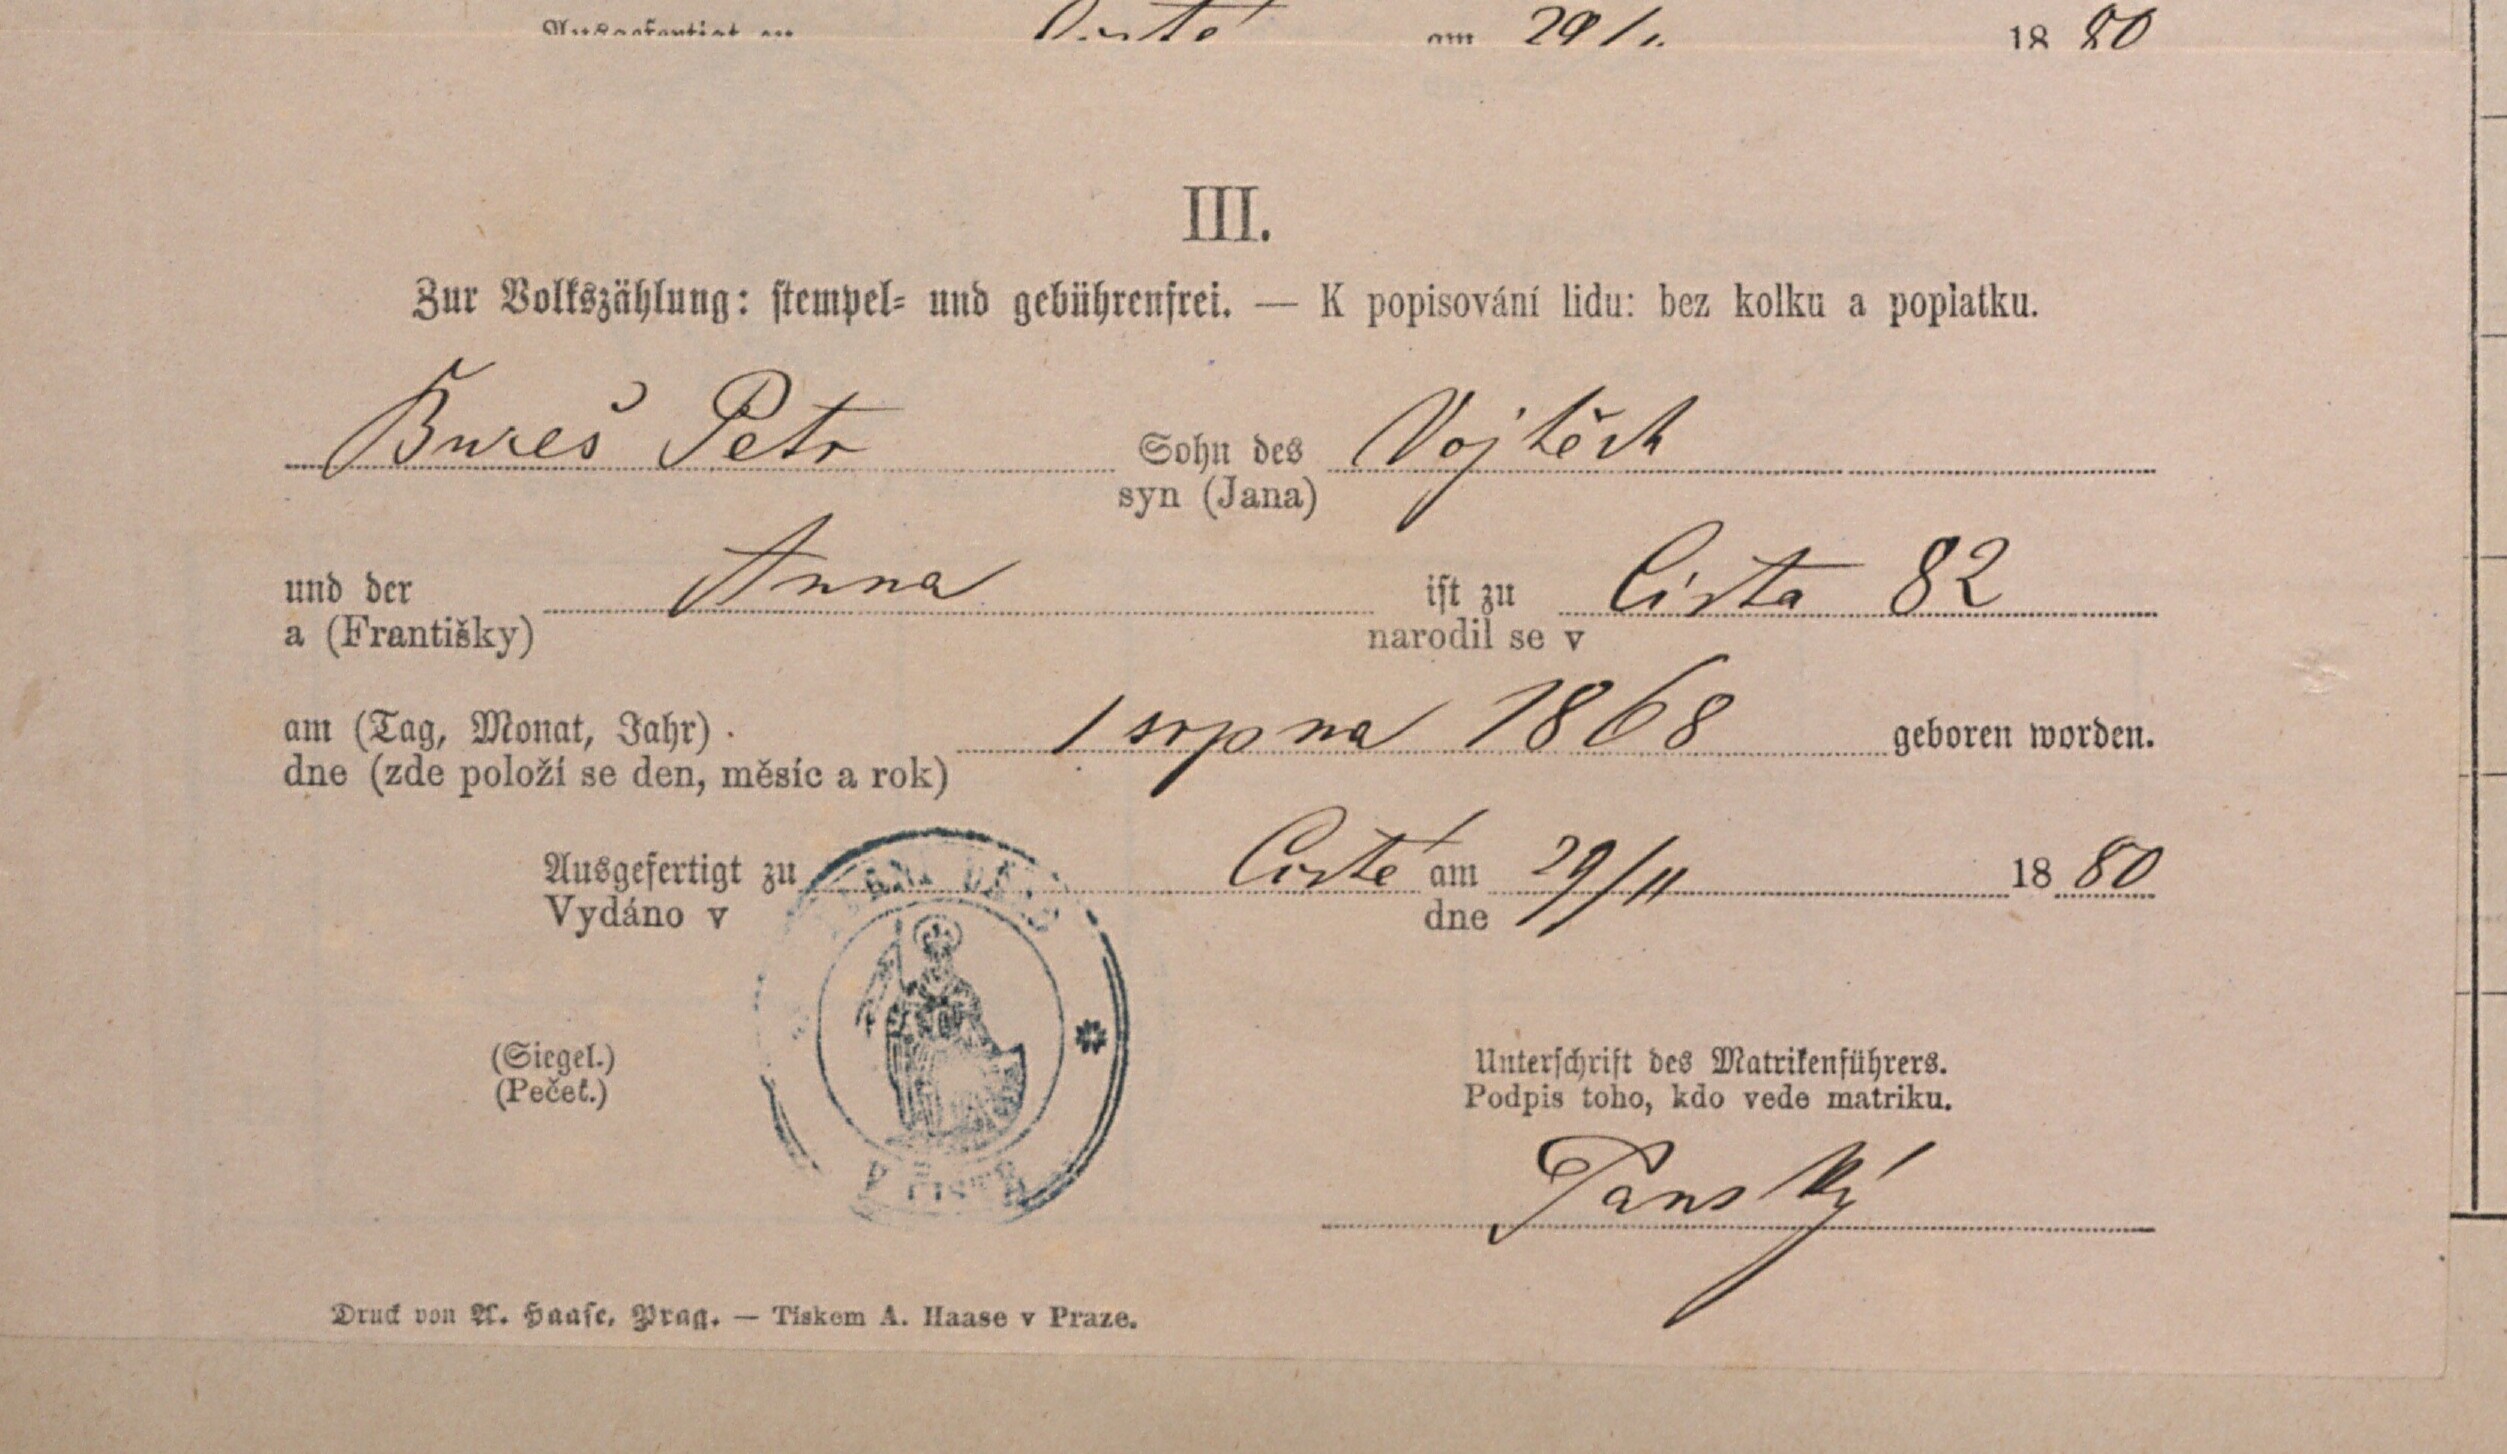 am 29/ 1880
III.
Zur Volkszählung: stempel- und gebührenfrei. — K popisování lidu: bez kolku a poplatku.
Bureš Petr Sohn des Vojtěch
syn (Jana)
und der Anna ist zu Cista 82
a (Františky) narodil se v
am (Tag, Monat, Jahr) 1 srpna 1868 geboren worden.
dne (zde položí se den, měsíc a rok)
Ausgefertigt zu Cisté am 29/11 1880
Vydáno v dne
(Siegel.) Unterschrift des Matrikenführers.
(Pečeť.) Podpis toho, kdo vede matriku.
V ČISTÉ
Panský
Druck von A. Haase, Prag. — Tiskem A. Haase v Praze.